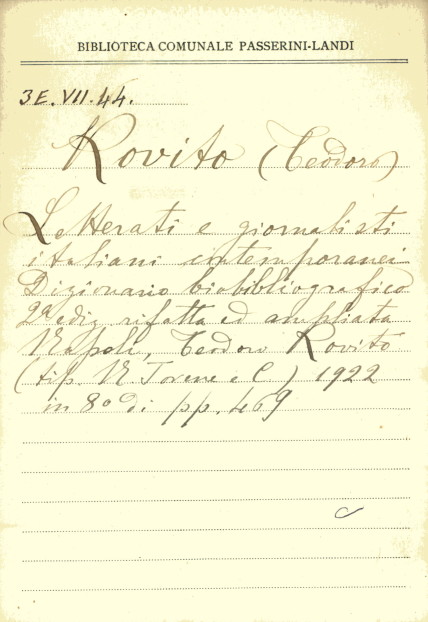 BIBLIOTECA COMUNALE PASSERINI-LANDI
3E.VII.44.
Rovito (Teodoro)
Letterati e giornalisti
italiani contemporanei
Dizionario biobibliografico
2ª ediz. rifatta ed ampliata
Napoli, Teodoro Rovito
(tip. N. Jovene e C.) 1922
in 8º di pp. 469